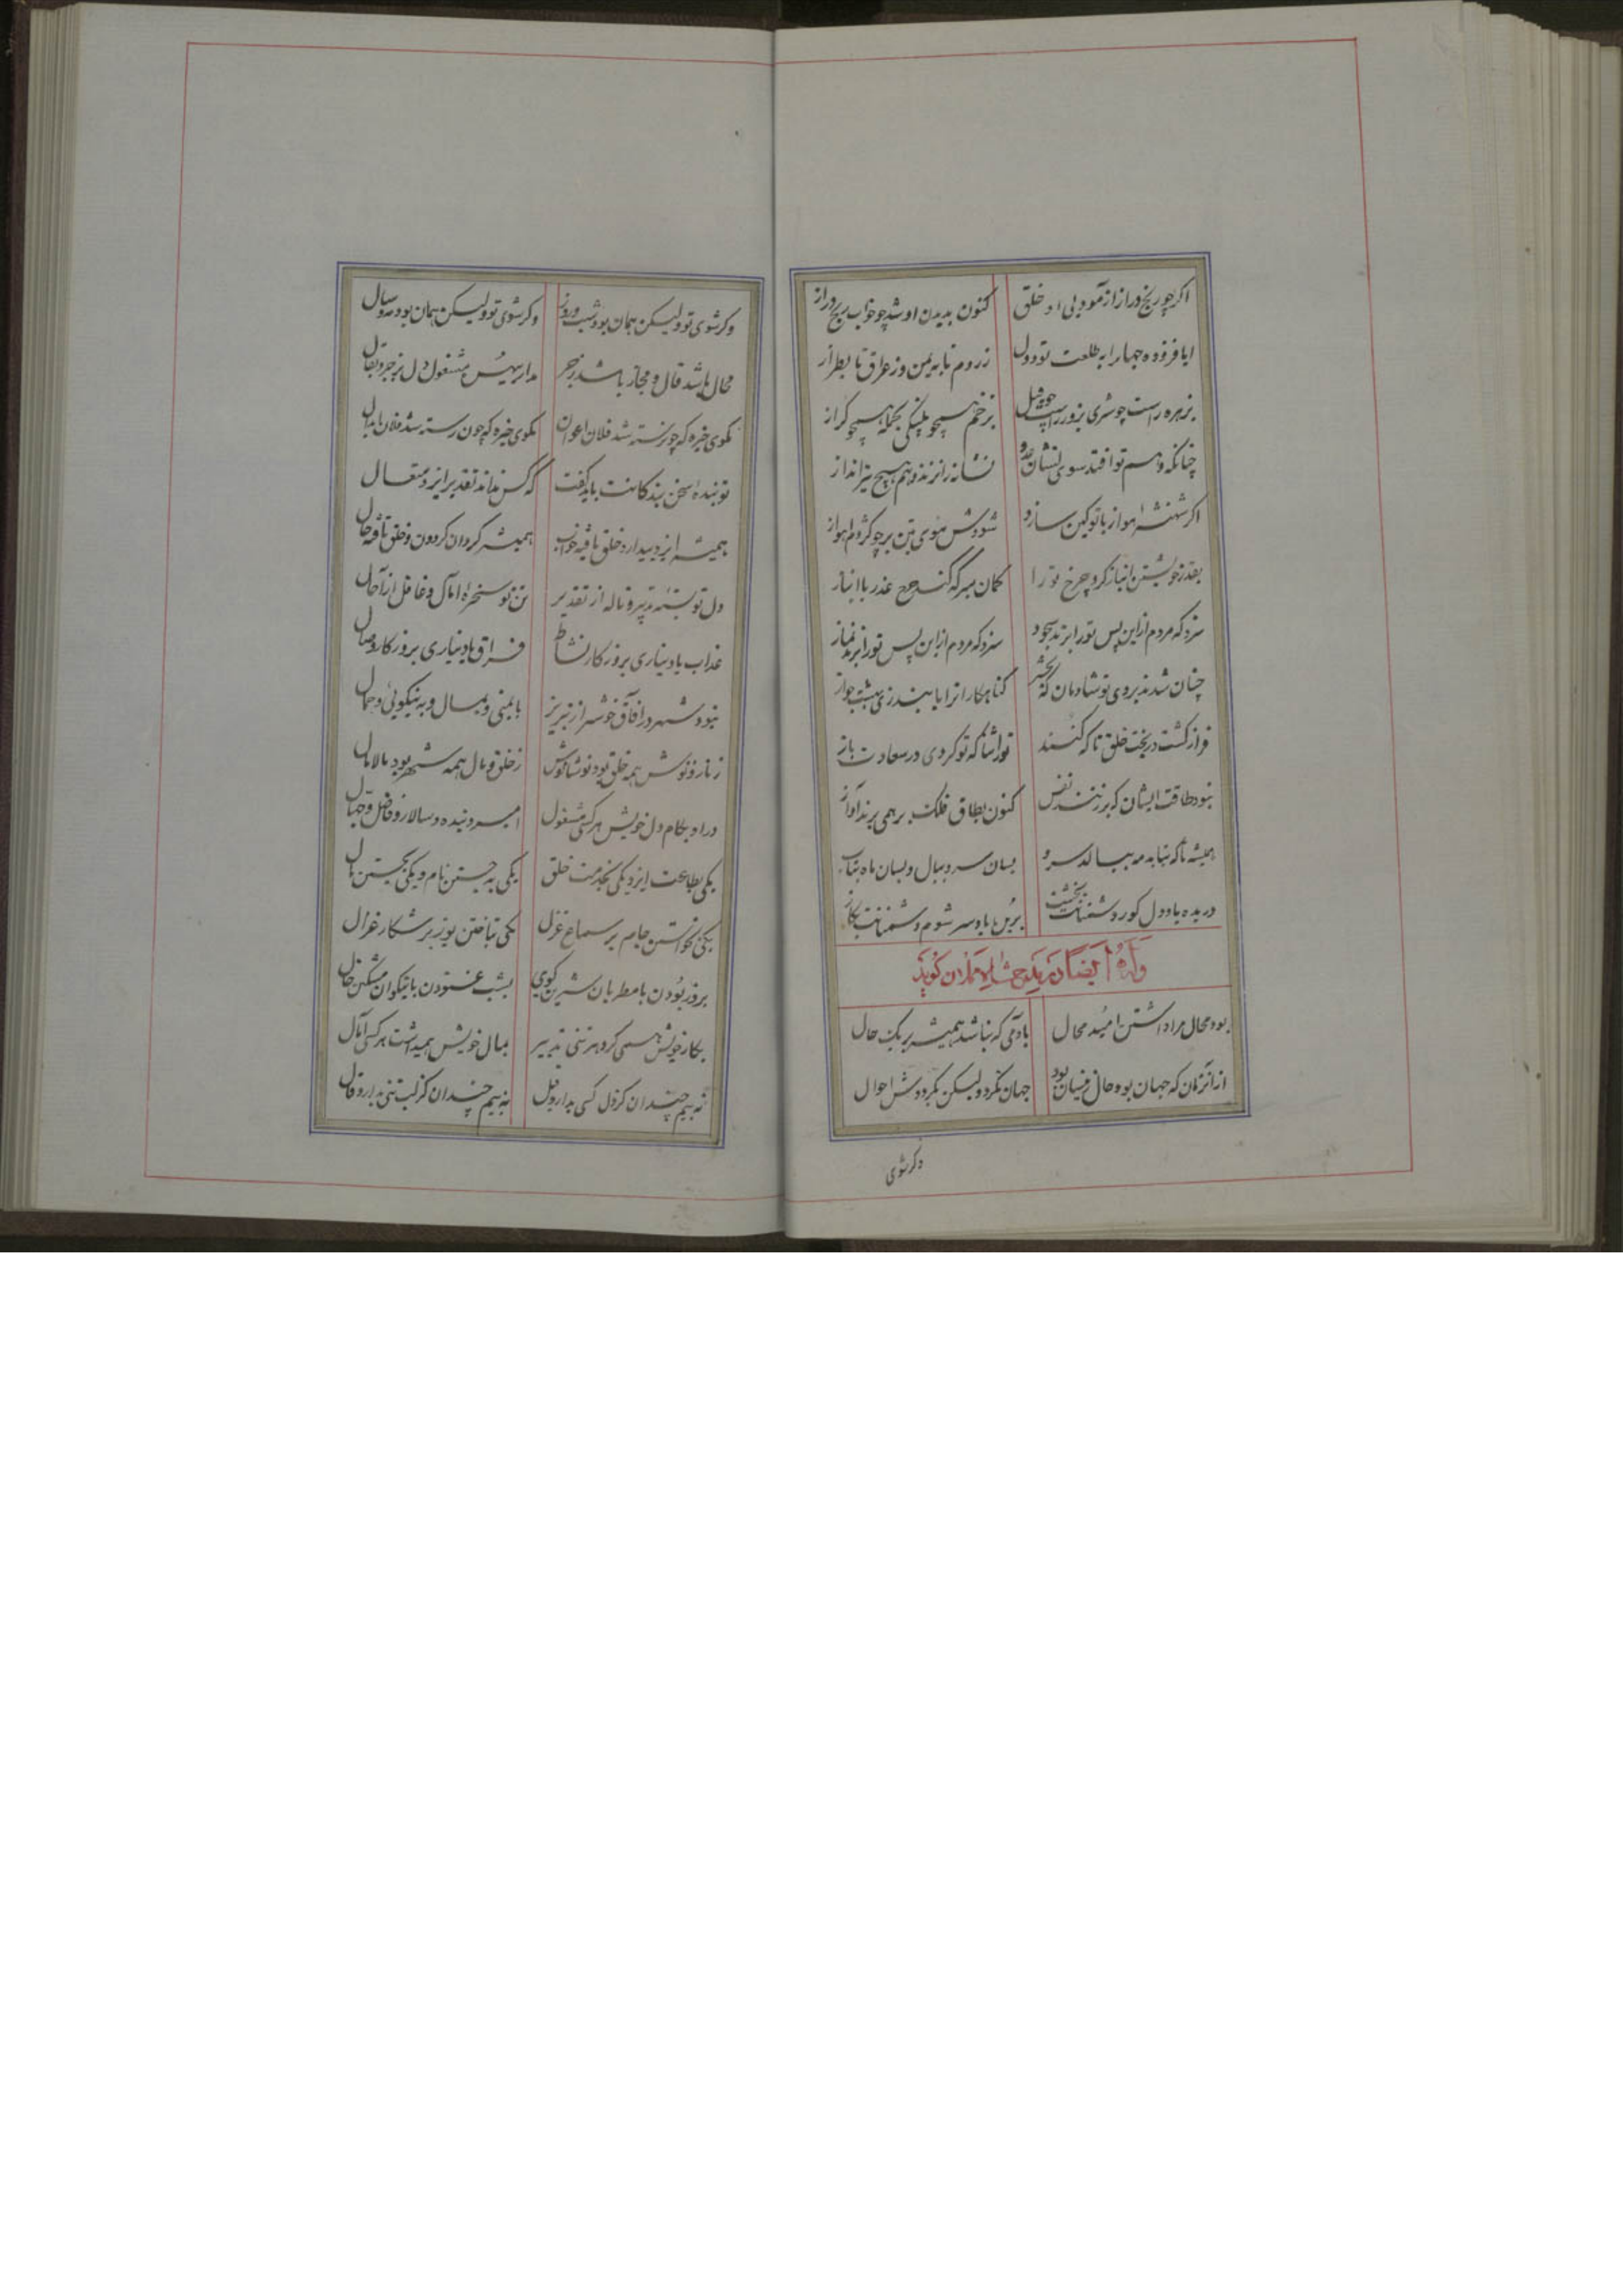 اکر چو رنج دراز از آمو ولی او خلق کنون بدیدن او شد چو خواب رنج دراز
ایا فزوده جهانرا به طلعت تو دول ز روم تا به یمن وز عراق تا بطراز
بزهره راست چو شیری بزور راست چو پیل بزخم همچو پلنگی بحمله همچو کراز
چنانکه وهم تو افتد سوی نشان عدو نشانه را نزند وهم هیچ تیرانداز
اکر شهنشه اهواز با تو کین سازد شود ش موی بتن بر چو کژدم اهواز
بقدر خویشتن انباز کرد چرخ تو را کمان مبر که کند چرخ غدر با انباز
سزد که مردم ازاین پس تو را برند سجود سزد که مردم ازاین پس تو را برند نماز
چنان شدند بروی تو شادمان که بحشر کناهکاران یابند زی بهشت جواز
فراز کشت در بخت خلق تا که کنند تو را ثنا که تو کردی در سعادت باز
نبود طاقت ایشان که برزنند نفس کنون بطاق فلک بر همی برند آواز
همیشه تا که بتابد مه ببالد سرو بسان سرو ببال و بسان ماه بتاب
دریده باد دل کور دشمنانت بخشت بریده باد سر شوم دشمنانت بکاز
وله ایضا در مدح شاه ... کوید
بود محال مرا داشتن امید محال بآدمی که نباشد همیشه بر یک حال
از آنزمان که جهان بود حال زینسان بود جهان نکردد ولیکن بکرددش احوال
وکر شوی
وکر شوی تو ولیکن همان بود شب و روز وکر شوی تو ولیکن همان بود مه و سال
محال باشد فال و مجاز باشد زجر مدار بیهش مشغول دل بزجر و بفال
مکوی خیره که چون بسته شد فلان اعوان مکوی خیره که چون رسته شد فلان ابدال
تو بنده سخن بندکانت باید کفت که کس نداند تقدیر ایزد متعال
همیشه ایزد بیدار و خلق یافته خواب همیشه کردان کردون و خلق یافته حال
دل تو بسته تدبیر و ناله از تقدیر تن تو سخره آمال و غافل از آجال
عذاب یاد نیاری بروزکار نشاط فراق یاد نیاری بروزکار وصال
نبود شهر در آفاق خوشتر از تبریز بایمنی و بمال و به نیکوئی و جمال
ز ناز و نوش همه خلق بود نوشانوش ز خلق و مال همه شهر بود مالامال
در او بکام دل خویش هر کسی مشغول امیر و بنده و سالار و فاضل و جهال
یکی بطاعت ایزد یکی بخدمت خلق یکی به جستن نام و یکی بجستن مال
یکی بخواستن جام بر سماع غزل یکی بتاختن یوز بر شکار غزال
بروز بودن با مطربان شیرین کوی بشب غنودن با نیکوان مشکین خال
بکار خویش همی کرد هر تنی تدبیر بمال خویش همیداشت هر کسی آمال
به نیم چندان کز دل کسی برآرد قیل به نیم چندان کز لب تنی برآرد قال